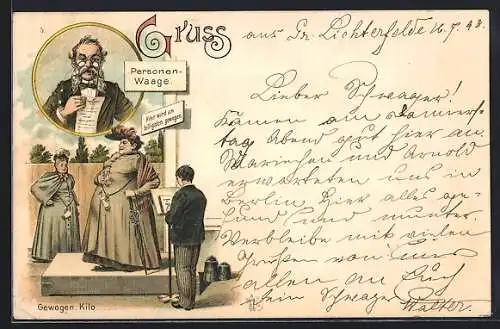 Gruss
aus Gr. Lichterfelde 16.7.98
Personen-
Waage.
Hier wird am
billigsten gewogen.
Lieber Schwager!
Kamen am Donners-
tag Abend gut hier an.
Mariechen und Arnold
erwarteten uns in
Berlin. Hier alles ge-
sund und munter.
Verbleibe mit vielen
Grüßen von uns
allen an Euch
Dein Schwager Walter.
Gewogen Kilo